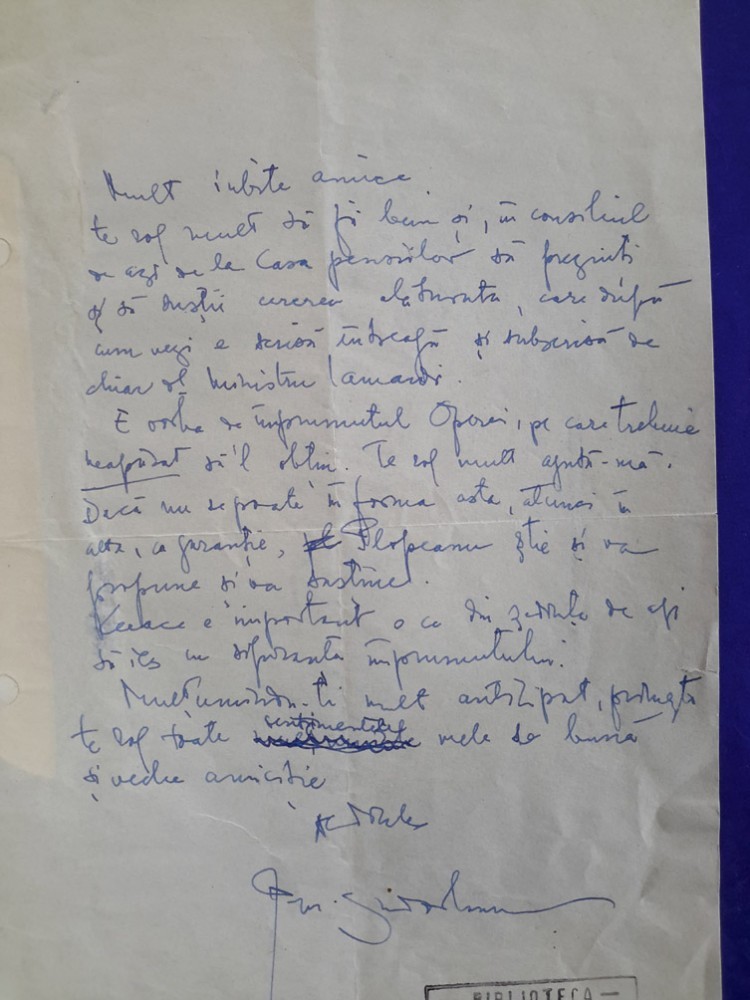 Mult iubite amice
te rog mult să fii bun și, în consiliul
de azi de la Casa pensiilor să prezinți
și să susții cererea alăturată, care după
cum vezi e scrisă întreagă și subscrisă de
chiar dl Ministru Iamandi.
E vorba de împrumutul Operei, pe care trebuie
neapărat să'l obțin. Te rog mult ajută-mă.
Dacă nu se poate în forma asta, atunci în
alta, ca garanție, Plopeanu știe și va
propune și va susține.
e important e ca din ședința de azi
să ies cu siguranța împrumutului.
Mulțumindu-ți mult anticipat, primește
te rog toate sentimentele mele de bună
și veche amiciție
BIBLIOTECA